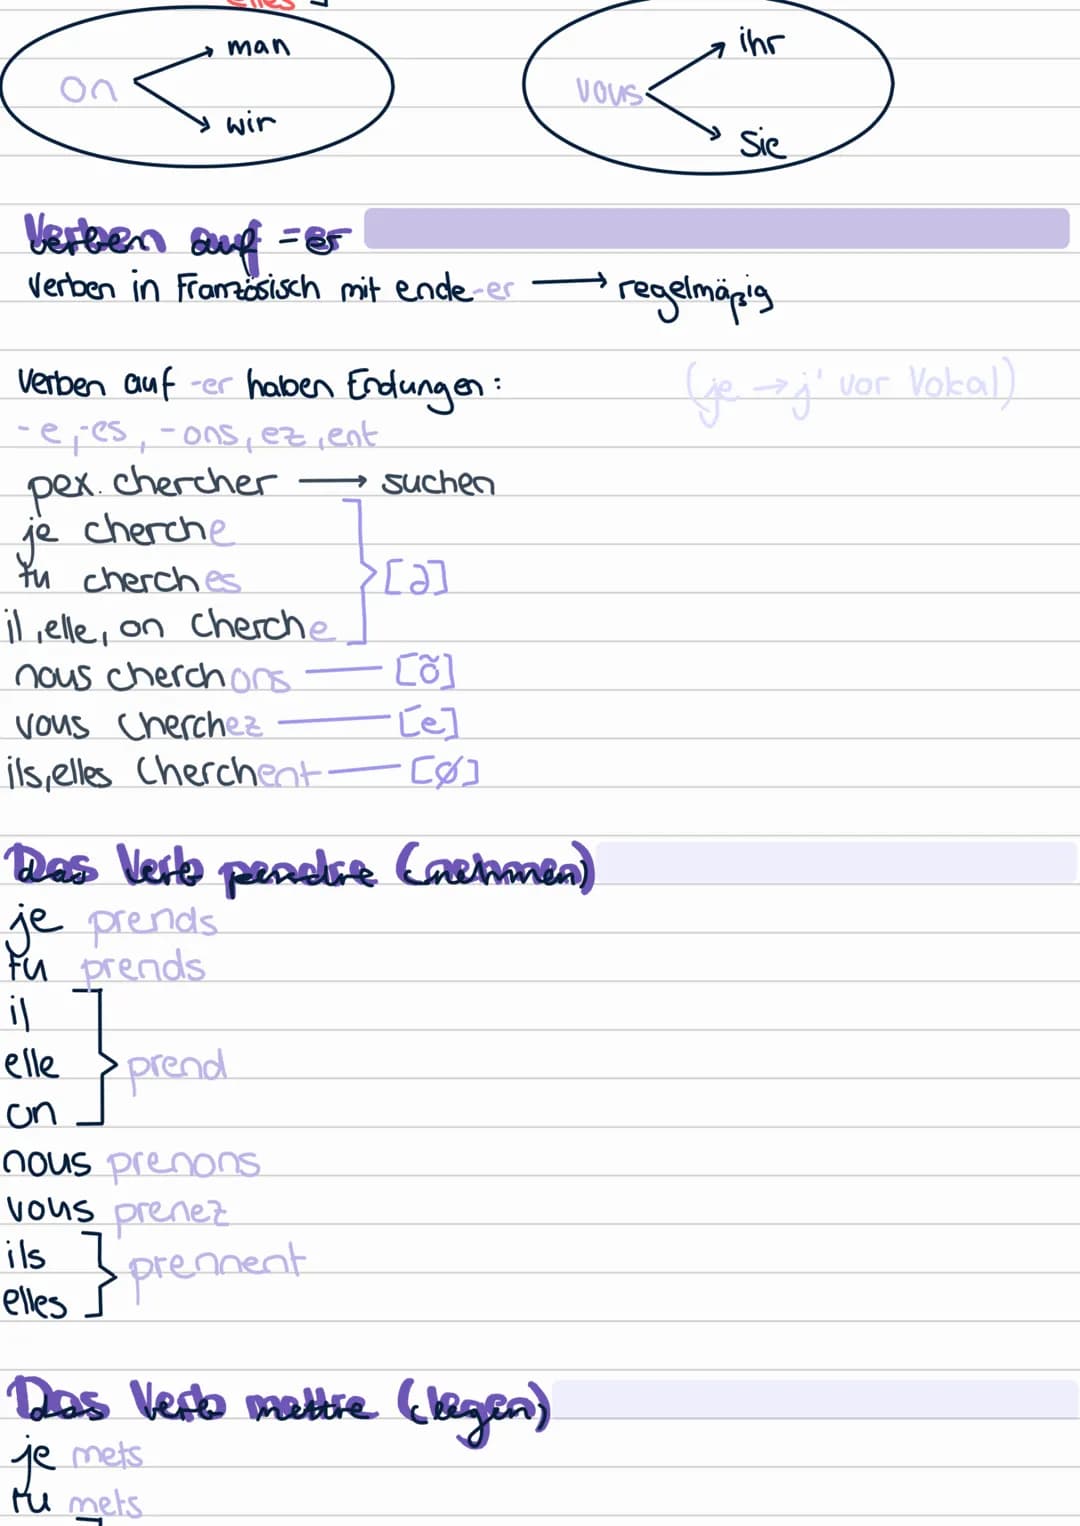 elles
on → man
→ wir
vous → ihr
→ Sie
Verben auf =er
Verben in Französisch mit ende -er → regelmäßig
Verben auf -er haben Endungen:
(je → j' vor Vokal)
-e,-es, -ons, ez, ent
pex. chercher → suchen
je cherche
tu cherches
[ə]
il, elle, on cherche
nous cherchons — [õ]
vous cherchez — [e]
ils, elles cherchent — [ø]
Das Verb pendre (nehmen)
je prends
tu prends
il
elle prend
on
nous prenons
vous prenez
ils prennent
elles
Das Verb mettre (legen)
je mets
tu mets